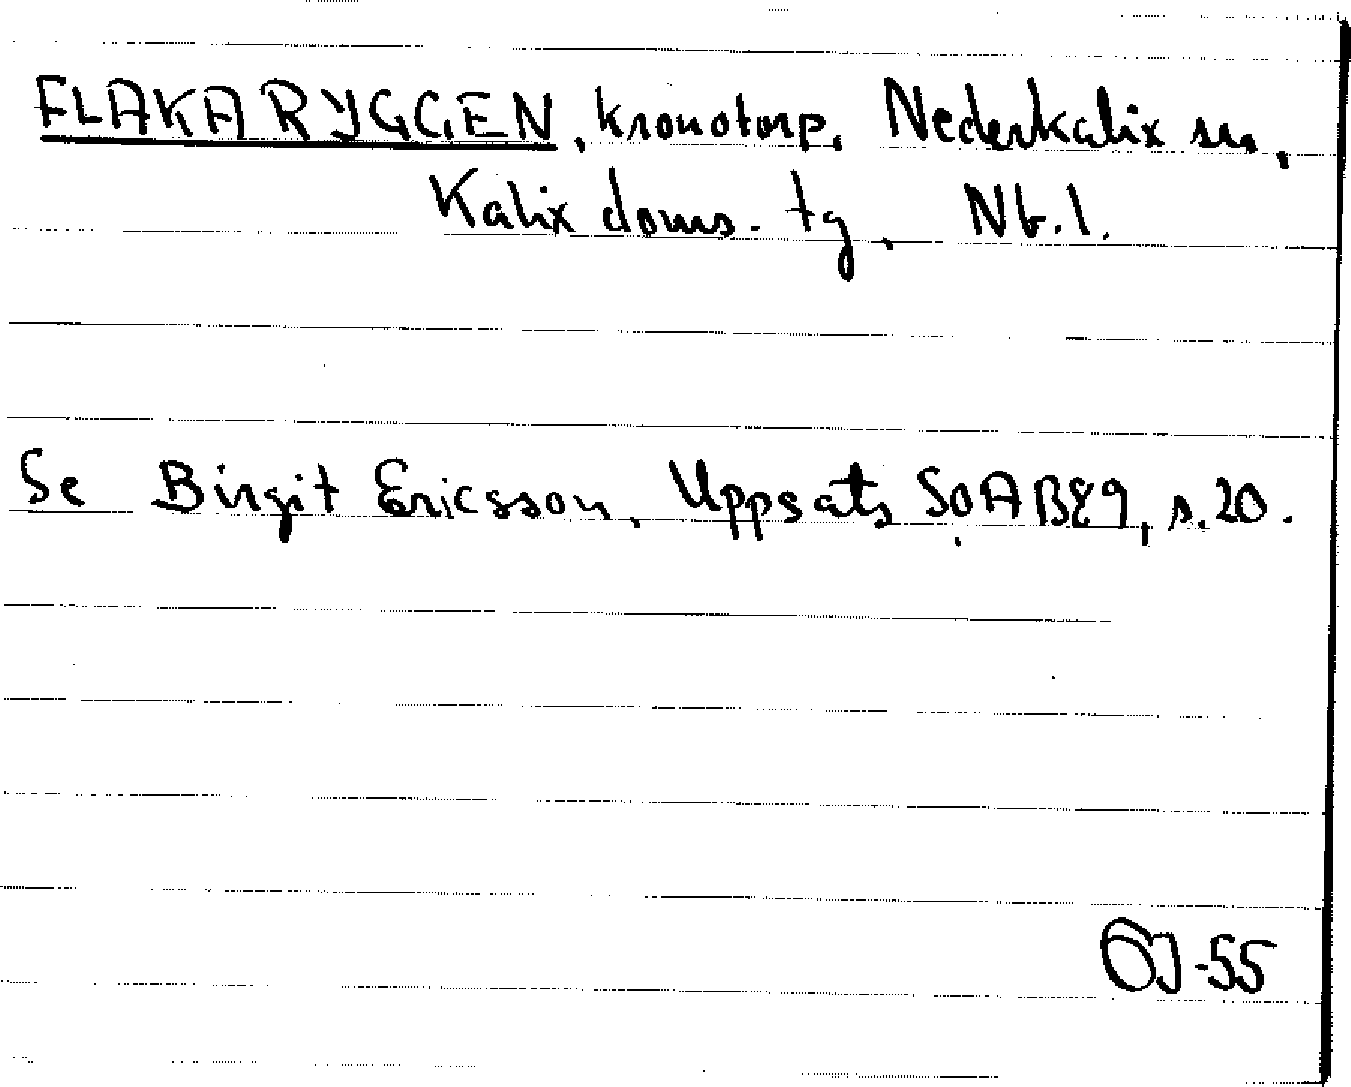 FLAKARYGGEN, kronotorp, Nederkalix sn,
Kalix doms. tg, Nb.l.
Se Birgit Ericsson, Uppsats SOAB89, s.20.